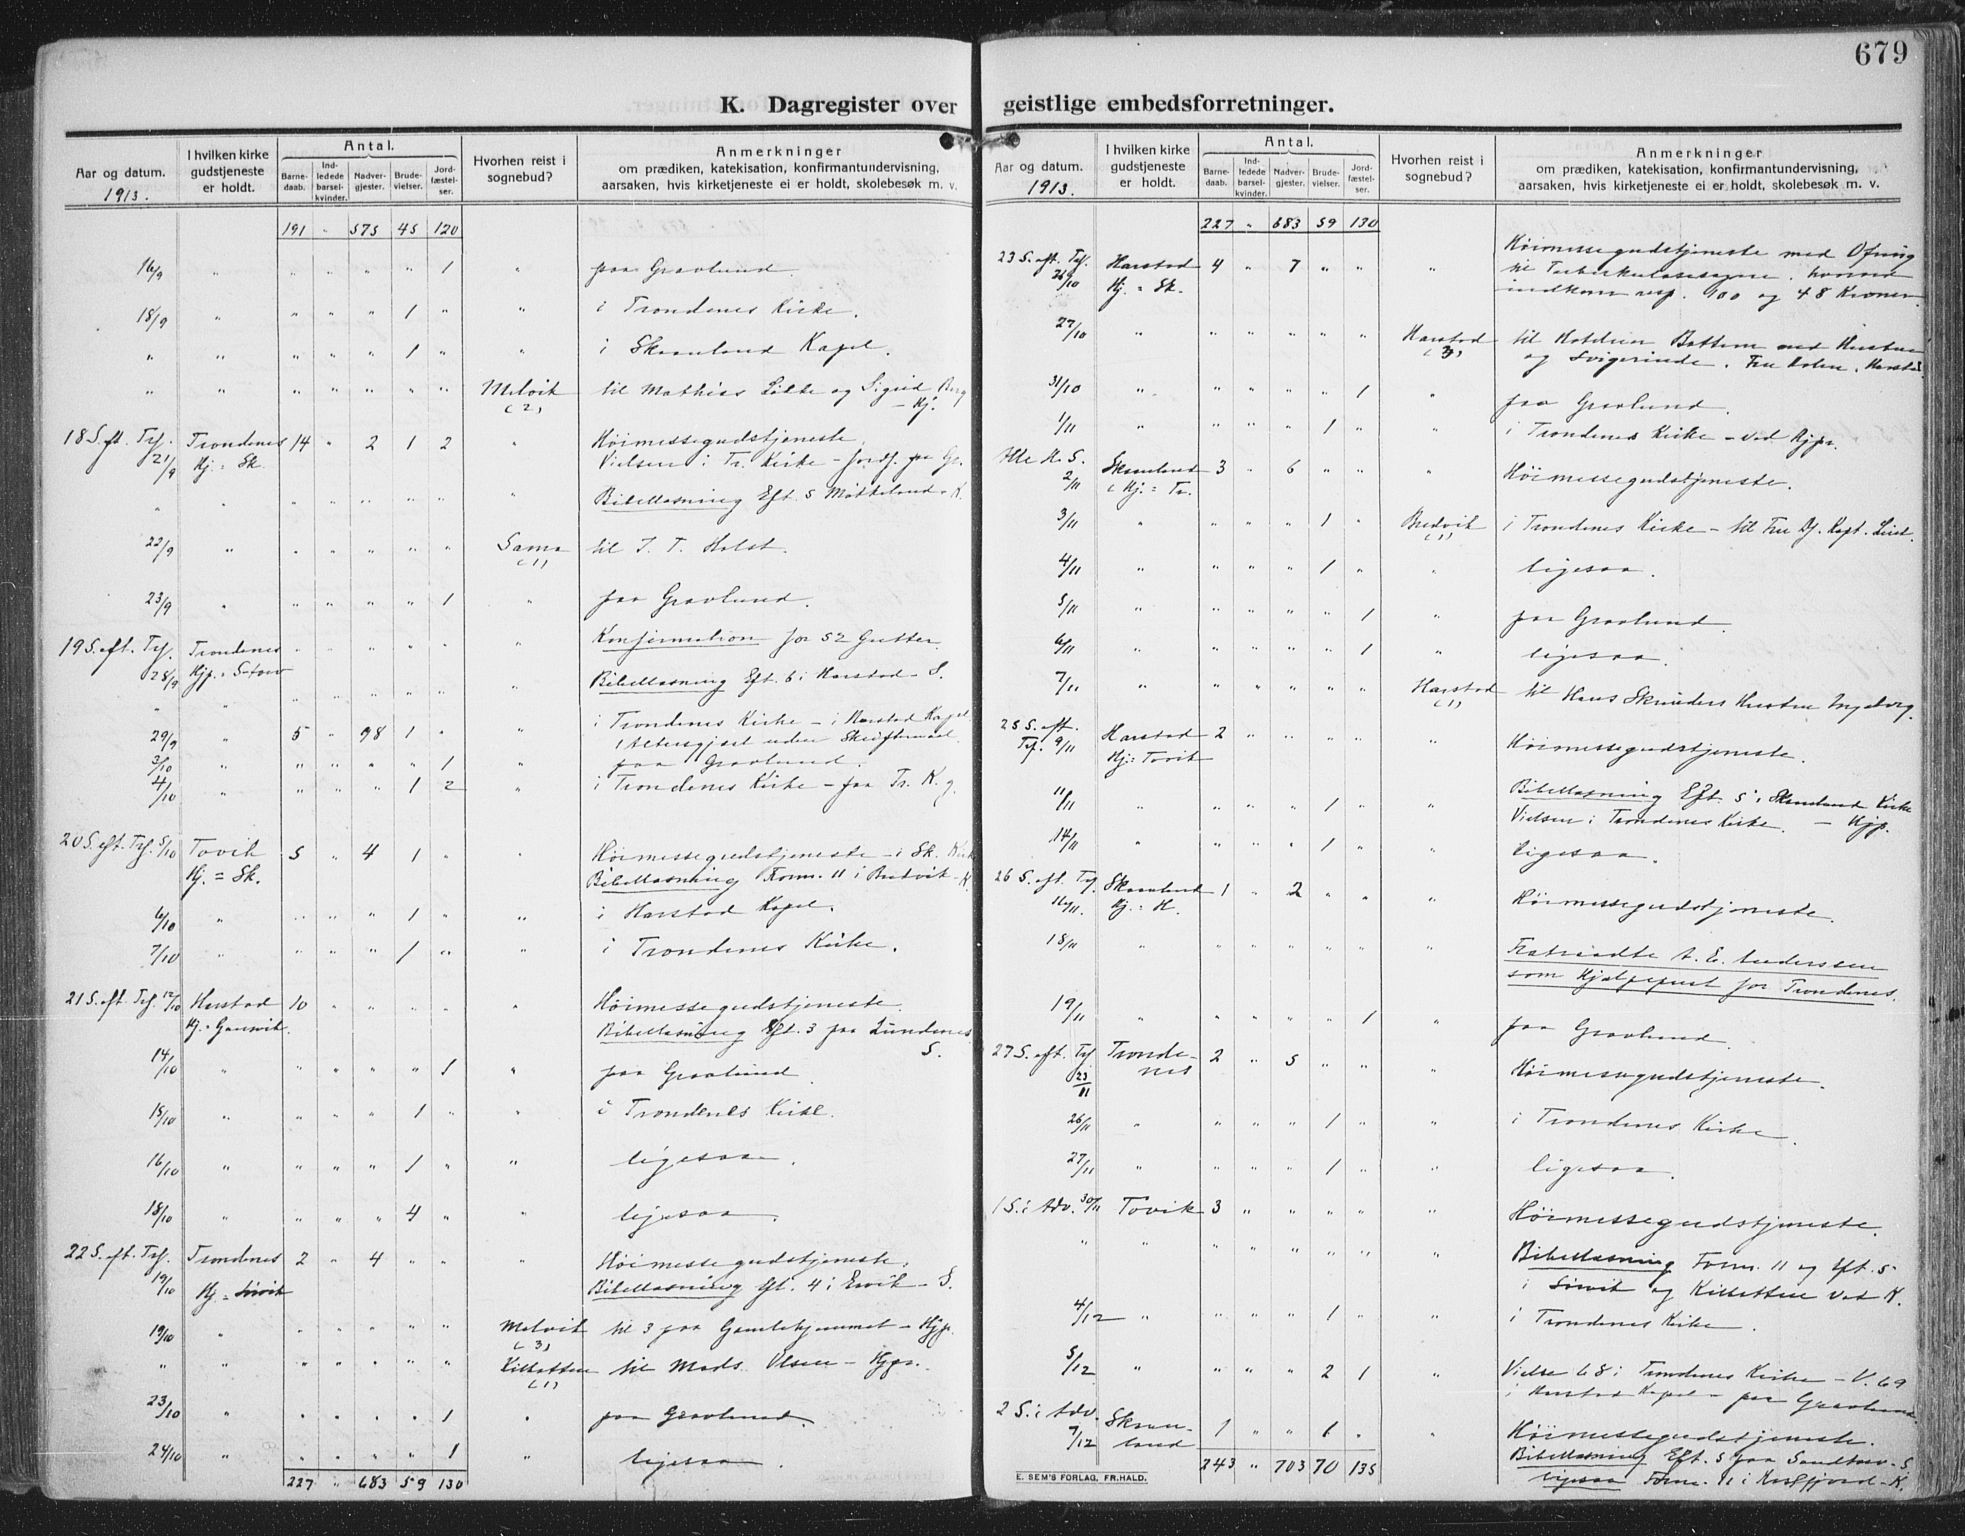 679
K. Dagregister over geistlige embedsforretninger.
Aar og datum. 1913.
I hvilken kirke gudstjeneste er holdt.
Antal.
Barnedaab.
Indledede barselkvinder.
Nadvergjester.
Brudevielser.
Jordfæstelser.
Hvorhen reist i sognebud?
Anmerkninger
om prædiken, katekisation, konfirmantundervisning,
aarsaken, hvis kirketjeneste ei er holdt, skolebesøk m. v.
191 " 575 45 120
16/9 " " " " " 1 " paa Gravlund.
18/9 " " " " 1 " " i Trondenes Kirke.
" " " " " 1 " " i Skaanland Kapel.
" " " " " " " Melvik (2) til Mathias Lotte og Sigrid Berg
– Hj.
18 S. eft. Trf. 21/9 Trondenes 14 " 2 1 2 " Høimessegudstjeneste.
Hj. = Sk. Vielsen i Tr. Kirke – jordf. paa Gr.
" " " " " " " " Bibellæsning Eft. 5 Møkkeland. K.
22/9 " " " " " " Sama (1) til J. T. Holst.
23/9 " " " " " 1 " paa Gravlund.
19 S. eft. Trf. 28/9 Trondenes " " " " " " Konfirmation for 52 Gutter.
Hjp. = Stow
" " " " " " " " Bibellæsning Eft. 6 i Harstad – S.
29/9 " 5 " 98 1 " i Trondenes Kirke – i Harstad Kapel.
Altersgjest uden Skriftemaal.
3/10 " " " " " 1 " paa Gravlund.
4/10 " " " " 1 2 " i Trondenes Kirke – paa Tr. K. g.
20 S. eft. Trf. 5/10 Tovik 5 " 4 1 " " Høimessegudstjeneste – i Sk. Kirk
Hj. = Sk. Bibellæsning Form. 11 i Bredvik – K.
6/10 " " " " 1 " " i Harstad Kapel.
7/10 " " " " 1 " " i Trondenes Kirke.
21 S. eft. Trf. 12/10 Harstad 10 " " " " " Høimessegudstjeneste.
Hj. = Gausvik. Bibellæsning Eft. 3 paa Lundenes
S.
14/10 " " " " " 1 " paa Gravlund.
15/10 " " " " 1 " " i Trondenes Kirke.
16/10 " " " " 1 " " ligesaa.
18/10 " " " " 4 " " ligesaa.
22 S. eft. Trf. 19/10 Trondenes 2 " 4 " " " Høimessegudstjeneste.
Hj. = Sørvik Bibellæsning Eft. 4 i Ervik – S.
19/10 " " " " " " Melvik (3) til 3 paa Gamlehjemmet – Hjp.
" " " " " " " Kilbotten (1) til Mads Olsen – Hjpr.
23/10 " " " " " 1 " paa Gravlund.
24/10 " " " " " 1 " ligesaa.
227 " 683 59 130
Aar og datum. 1913.
I hvilken kirke gudstjeneste er holdt.
Antal.
Barnedaab.
Indledede barselkvinder.
Nadvergjester.
Brudevielser.
Jordfæstelser.
Hvorhen reist i sognebud?
Anmerkninger
om prædiken, katekisation, konfirmantundervisning,
aarsaken, hvis kirketjeneste ei er holdt, skolebesøk m. v.
227 " 683 59 130
23 S. eft. Trf. 26/10 Harstad 4 " 7 " " " Høimessegudstjeneste med Ofring
Hj. = Sk. til Tuberkulosesagene, hvorved
indkom resp. 100 og 48 Kroner.
27/10 " " " " " " Harstad (3) til Hotelier Bottem med Hustru
og Svigerinde, Fru Holm, Harstad.
31/10 " " " " " 1 " paa Gravlund.
1/11 " " " " 1 " " i Trondenes Kirke – ved Hjpr.
Alle H. S. 2/11 Skaanland 3 " 6 " " " Høimessegudstjeneste.
Hj. = Tr.
3/11 " " " " 1 " Bredvik (1) i Trondenes Kirke – til Fru Kapt.
4/11 " " " " 1 " " ligesaa.
5/11 " " " " " 1 " paa Gravlund.
6/11 " " " " " 1 " ligesaa.
7/11 " " " " " " Harstad (1) til Hans Skrøders Hustru Ingeborg.
25 S. eft. Trf. 9/11 Harstad 2 " " " " " Høimessegudstjeneste.
Hj. = Tovik
Bibellæsning Eft. 5 i Skaanland Kirke
11/11 " " " " 1 " " Vielsen i Trondenes Kirke. – Hjp.
14/11 " " " " 1 " " ligesaa.
26 S. eft. Trf. 16/11 Skaanland 1 " 2 " " " Høimessegudstjeneste.
Hj. = H.
18/11 " " " " " " " Fratraadte A. E. Anderssen
som Hjælpeprest for Trondenes.
19/11 " " " " " 1 " paa Gravlund.
27 S. eft. Trf. 23/11 Trondenes 2 " 5 " " " Høimessegudstjeneste.
26/11 " " " " 1 " " i Trondenes Kirke.
27/11 " " " " 1 " " ligesaa.
1 S. i Adv. 30/11 Tovik 3 " " " " " Høimessegudstjeneste.
" " " " " " " " Bibellæsning Form. 11 og Eft. 5
i Sørvik og Kilbotten ved K.
4/12 " " " " 1 " " i Trondenes Kirke.
5/12 " " " " 2 1 " Vielse 68 i Trondenes Kirke – V. 69
i Harstad Kapel – paa Gravlund.
2 S. i Adv. 7/12 Skaanland 1 " " 6 " Høimessegudstjeneste.
Bibellæsning Eft. 5 paa Sandtorv – S
ligesaa Form. 11 i – K.
243 " 703 70 135
E. SEM'S FORLAG, FR.HALD.